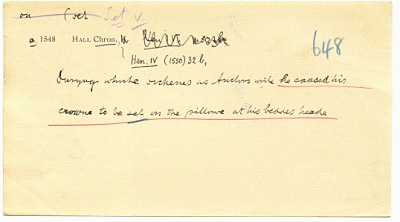 on (set Set v.
648
a 1548 HALL Chron.
Hen. IV (1550) 32 b,
Duryng whiche sickenes as Auctors write he caused his
crowne to be set on the pillowe at his beddes heade